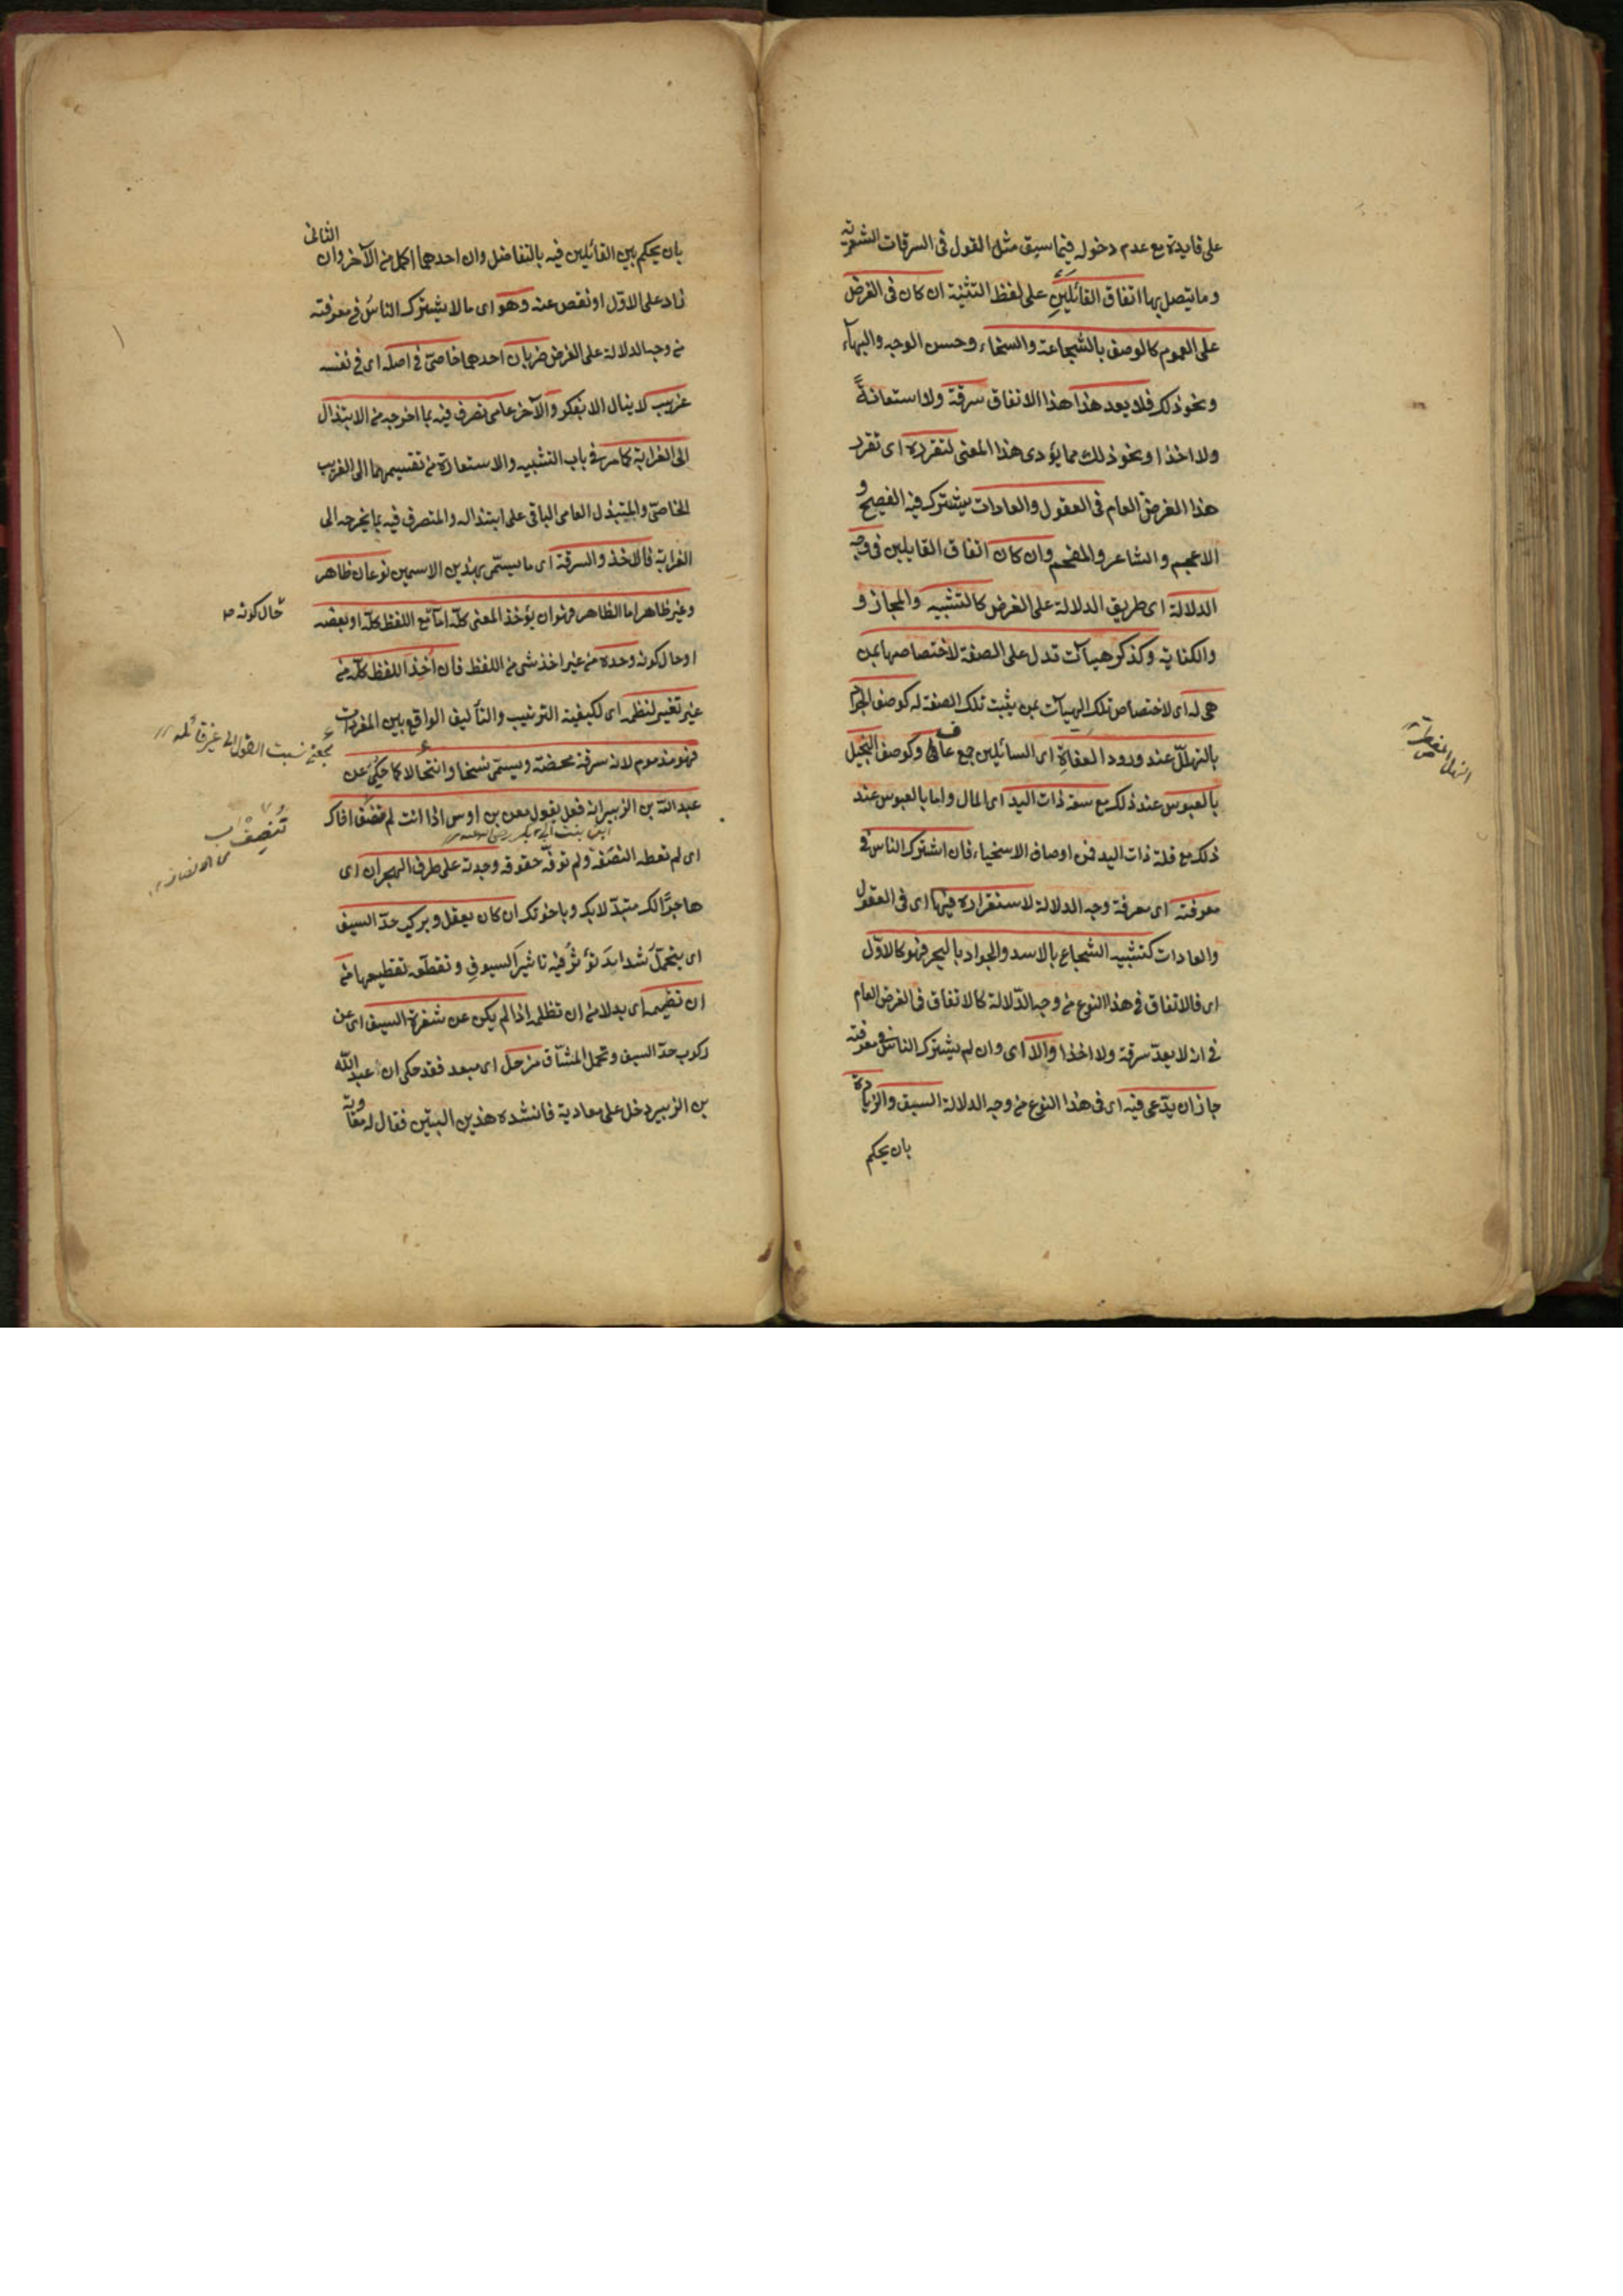 على فايدة مع عدم دخوله فيما سبق مثل القول فى السرقات الشعرية
وما يتصل بها اتفاق القائلين على لفظ التثنية ان كان فى الغرض
على العموم كالوصف بالشجاعة والسخاء وحسن الوجه والبهاء
ونحو ذلك فلا يعد هذا هذا الاتفاق سرقة ولا استعانةً
ولا اخذا ونحو ذلك مما يؤدى هذا المعنى لتقرره اى تقرر
هذا الغرض العام فى العقول والعادات يشترك فيه الفصيح و
الاعجم والشاعر والمفحم وان كان اتفاق القايلين فى وجه
الدلالة اى طريق الدلالة على الغرض كالتشبيه والمجاز و
والكناية وكذكر هيآت تدل على الصفة لاختصاصها بمن
هى له اى لاختصاص تلك الهيآت بمن يثبت تلك الصفة له كوصف الجواد
بالتهلل عند ورود العفاة اى السائلين جمع عافى وكوصف البخيل
بالعبوس عند ذلك مع سعة ذات اليد اى المال واما بالعبوس عند
ذلك مع قلة ذات اليد فمن اوصاف الاسخياء فان اشترك الناس فى
معرفته اى معرفة وجه الدلالة لاستقراره فيها اى فى العقول
والعادات كتشبيه الشجاع بالاسد والجواد بالبحر فهو كالاوّل
اى فالاتفاق فى هذا النوع من وجه الدّلالة كالاتفاق فى الغرض العام
فى انه لا يعدّ سرقة ولا اخذا والا اى وان لم يشترك الناس فى معرفته
جاز ان يدّعى فيه اى فى هذا النوع من وجه الدلالة السبق والزيادة
بان يحكم
بان يحكم بين القائلين فيه بالتفاضل وان احدهما اكمل من الآخر وان الثانى
زاد على الاوّل او نقص عنه وهو اى ما لا يشترك الناس فى معرفته
من وجه الدلالة على الغرض ضربان احدهما خاصىّ فى اصله اى فى نفسه
غريب لا ينال الا بفكر والآخر عامى تصرف فيه بما اخرجه من الابتذال
الى الغرابة كما مر فى باب التشبيه والاستعارة من تقسيمهما الى الغريب
الخاصىّ والمبتذل العامى الباقى على ابتذاله والمتصرف فيه بما يخرجه الى
الغرابة فالاخذ والسرقة اى ما يسمّى بهذين الاسمين نوعان ظاهر
وغير ظاهر اما الظاهر فهو ان يؤخذ المعنى كلّه امّا مع اللفظ كلّه او بعضه
حال كونه
او حال كونه وحده من غير اخذ شى من اللفظ فان اُخِذ اللفظ كلّه من
غير تغيير لنظمه اى لكيفية الترتيب والتأليف الواقع بين المفردات
بمعنى نسبت القول الى غير قائله
فهو مذموم لانه سرقة محضة ويسمّى نسخا وانتحالا كما حُكِىَ عن
عبد الله بن الزبير انه فعل بقول معن بن اوس اذا انت لم تنصف اخاك
تُنصِفْ
من الانصاف
اى لم تعطه النصَفة ولم توفّه حقوقه وجدته على طرف الهجران اى
هاجرًا لك متبدّلا بك وباخوتك ان كان يعقل ويركب حدّ السيف
اى يتحمّل شدايد تؤثر فيه تاثير السيوف وتقطّعه تقطيعها من
ان تضيمه اى بدلا من ان تظلمه اذا لم يكن عن شفرة السيف اى عن
ركوب حدّ السيف وتحمل المشاق مزحل اى مبعد فقد حكى ان عبد الله
بن الزبير دخل على معاوية فانشده هذين البيتين فقال له معاوية